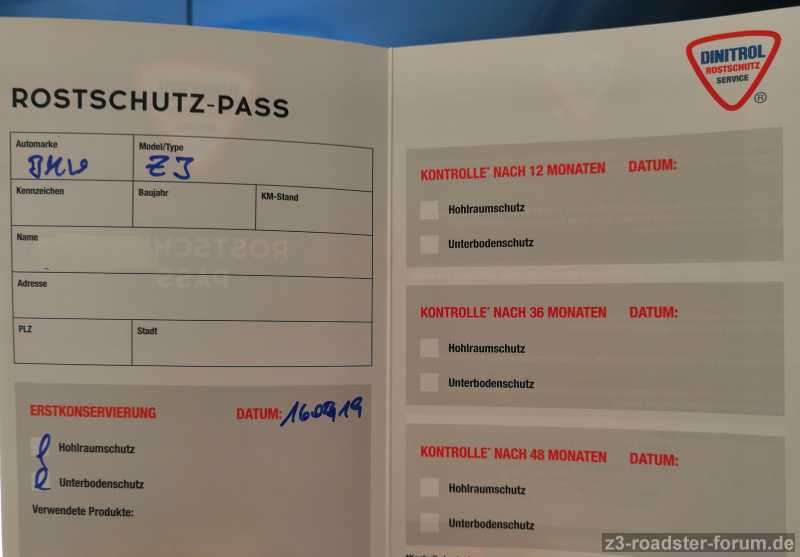 ROSTSCHUTZ-PASS
Automarke
BMW
Model/Type
Z3
Kennzeichen
Baujahr
KM-Stand
Name
Adresse
PLZ
Stadt
ERSTKONSERVIERUNG
DATUM:
Hohlraumschutz
Unterbodenschutz
Verwendete Produkte:
DINITROL
ROSTSCHUTZ
SERVICE
®
KONTROLLE* NACH 12 MONATEN DATUM:
Hohlraumschutz
Unterbodenschutz
KONTROLLE* NACH 36 MONATEN DATUM:
Hohlraumschutz
Unterbodenschutz
KONTROLLE* NACH 48 MONATEN DATUM:
Hohlraumschutz
Unterbodenschutz
z3-roadster-forum.de